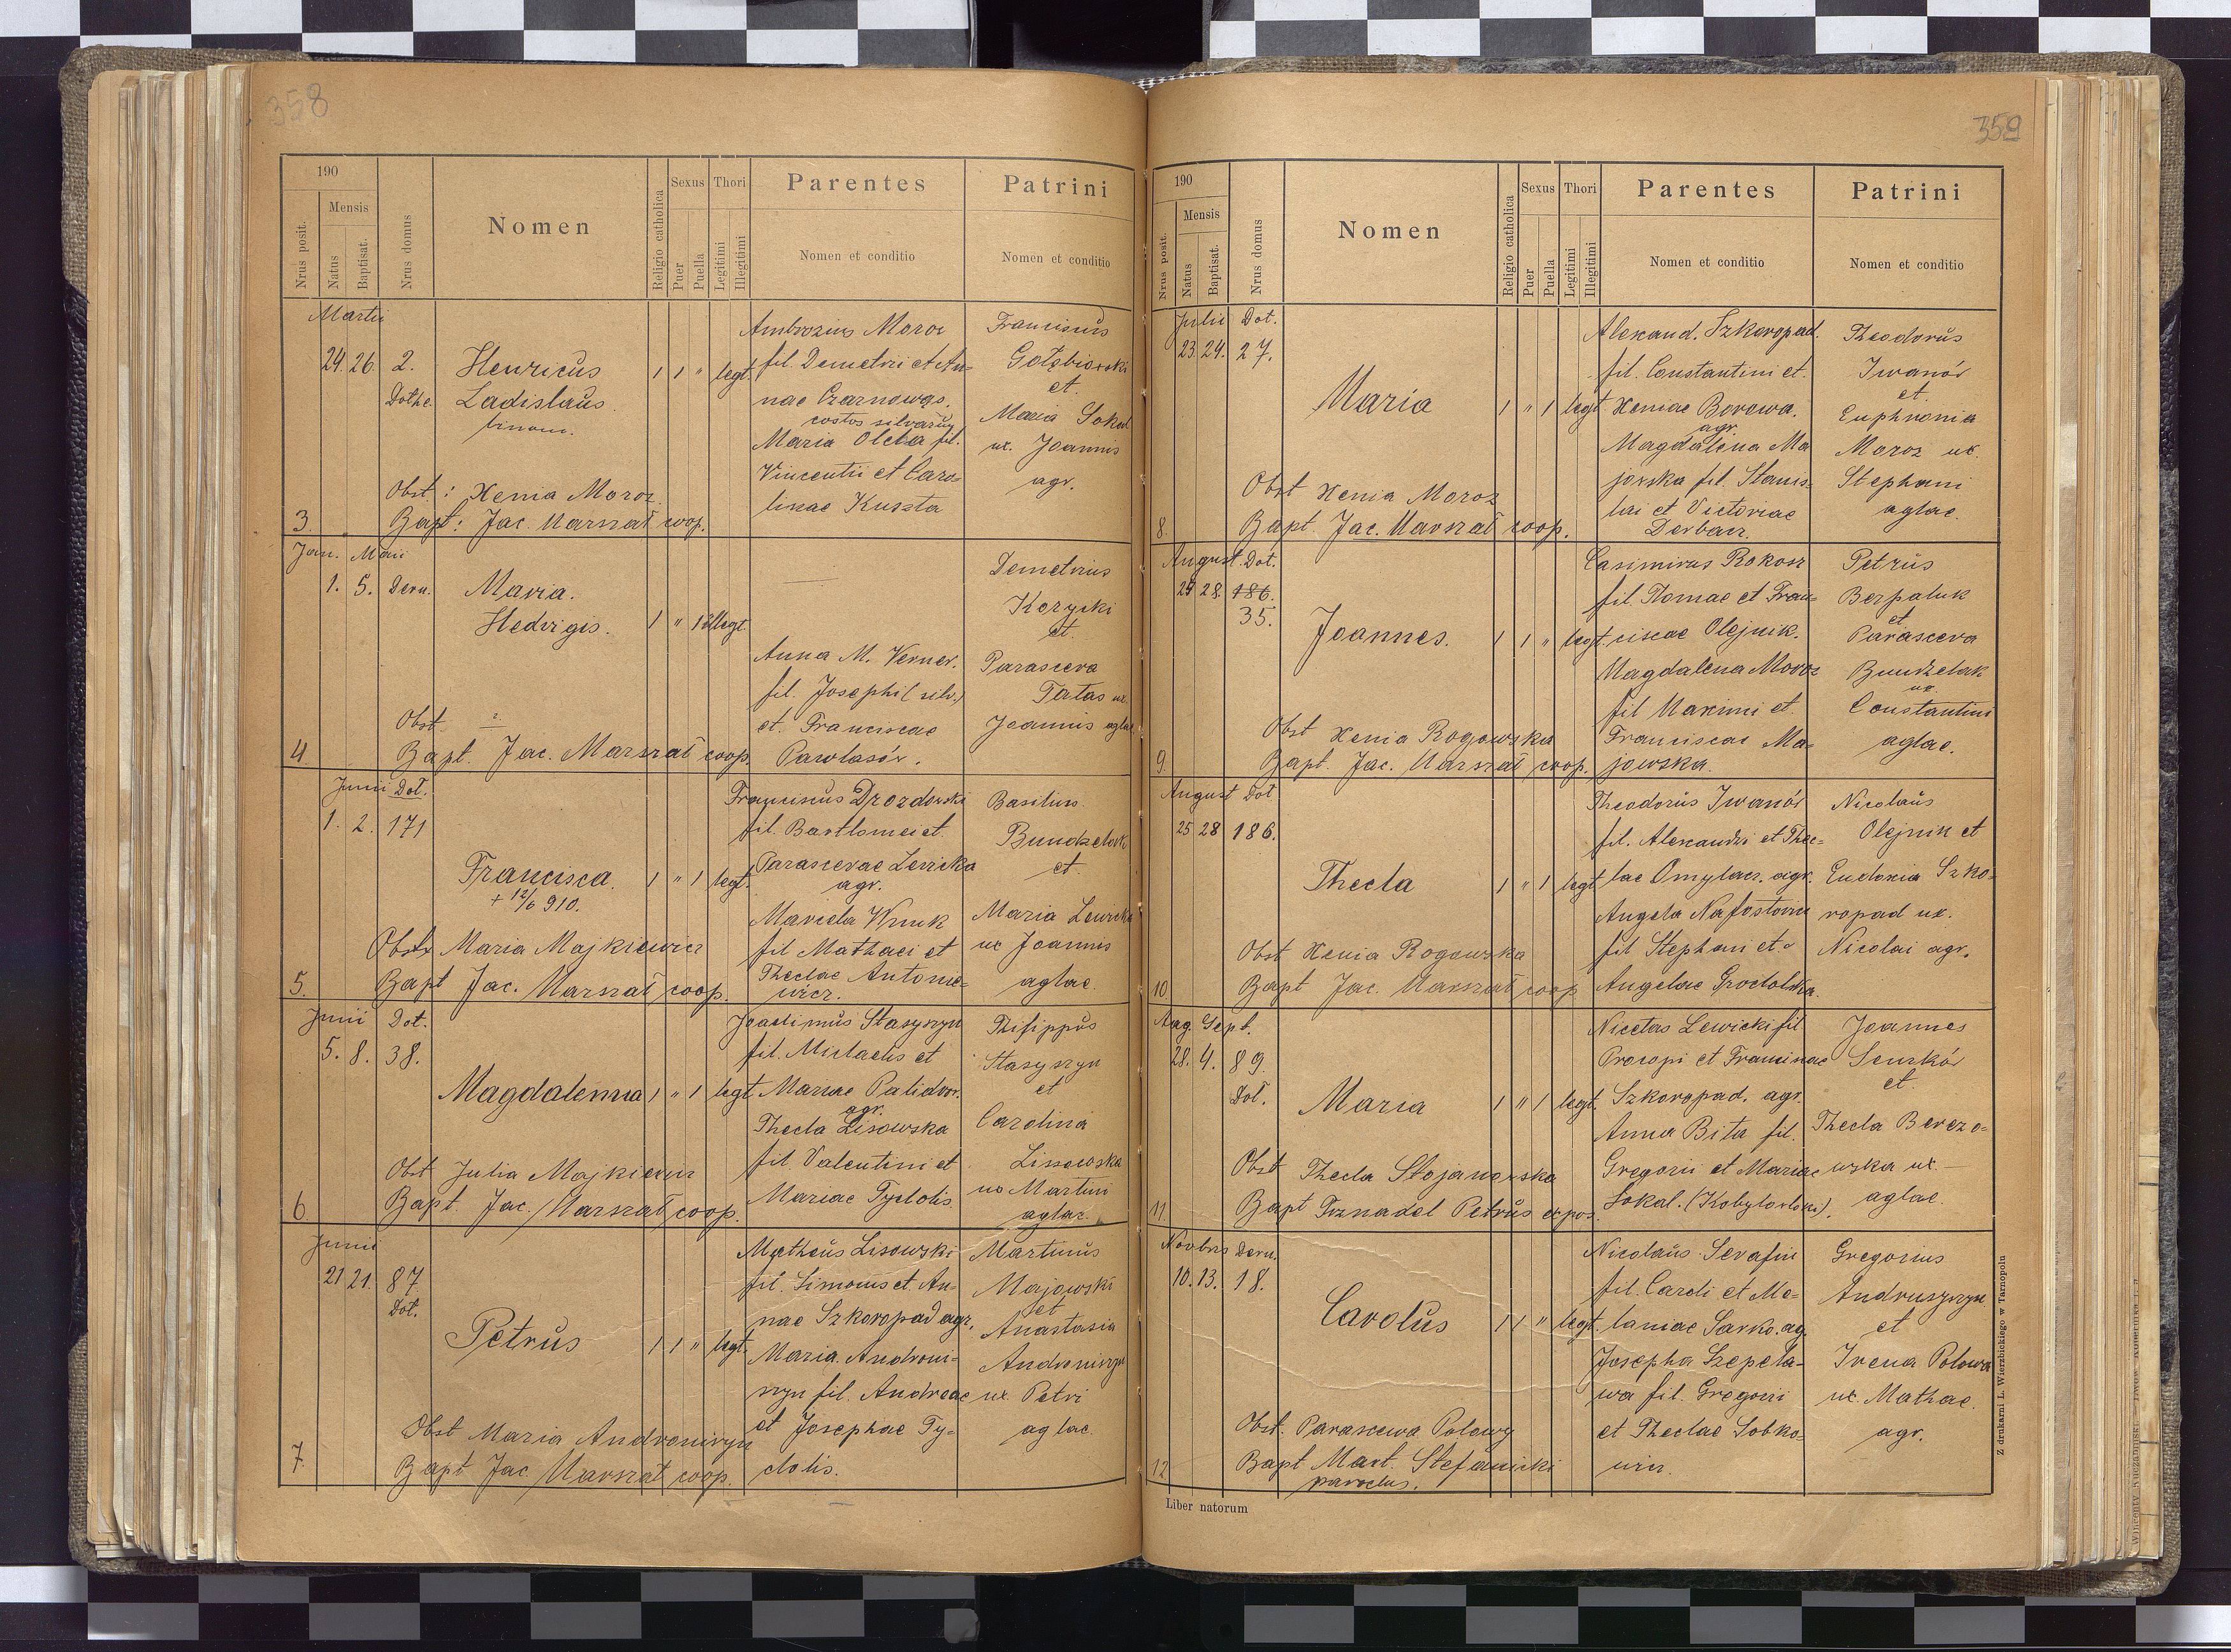 358
190
Nrus posit.
Mensis
Natus
Baptisat.
Nrus domus
Nomen
Religio catholica
Sexus
Puer
Puella
Thori
Legitimi
Illegitimi
Parentes
Nomen et conditio
Patrini
Nomen et conditio
Martii
24. 26. 2.
Dothe.
Henricus
Ladislaus
binom.
1 1 " legt.
Ambrozius Moroz
fil. Demetrii et An-
nae Czarnowąs.
costos silvarum
Maria Olcha fil.
Vincentii et Caro-
linae Kuszta
Franciscus
Gołębiowski
et
Maria Sokal
ux. Joannis
agr.
Obst.: Xenia Moroz.
3. Bapt: Jac. Marszał coop.
Jan. Maii
1. 5. Deru.
Maria.
Hedvigis.
1 " 1 illegt.
Anna M. Verner.
fil. Josephi (silv.)
et Franciscae
Pawlasów.
Demetrius
Korycki
et
Parasceva
Tatas ux.
Joannis aglae
Obst — ?
4 Bapt. Jac. Marszał coop.
Junii Dot.
1. 2. 171
Francisca.
+ 12/6 910.
1 " 1 legt.
Franciscus Drozdowski
fil. Bartlomei et
Parascevae Lewicka
agr.
Mariela Wnuk
fil Mathaei et
Theclae Antonie-
wicz.
Basilius
Bundzelak
et
Maria Lewicka
ux Joannis
aglae.
Obstx Maria Majkiewicz
5. Bapt Jac. Marszał coop.
Junii Dot.
5. 8. 38.
Magdalenna
1 " 1 legt.
Joachimus Stasyszyn
fil. Michaelis et
Mariae Palidwor.
agr.
Thecla Lisowska
fil Valentini et
Mariae Tycholis
Philippus
Stasyszyn
et
Carolina
Lissowska
ux Martini
aglae.
Obst Julia Majkiewicz
6 Bapt. Jac. Marszał coop.
Junii
21 21. 87
Dot.
Petrus
1 1 " legt.
Matheus Lisowski
fil. Simonis et An-
nae Szkoropad agr.
Maria Androni-
szyn fil. Andreae
et Josephae Ty-
cholis.
Martinus
Majowski
et
Anastasia
Androniszyn
ux. Petri
aglae.
Obst Maria Androniszyn
7. Bapt Jac. Marszał coop.
359
190
Nrus posit.
Mensis
Natus
Baptisat.
Nrus domus
Nomen
Religio catholica
Sexus
Puer
Puella
Thori
Legitimi
Illegitimi
Parentes
Nomen et conditio
Patrini
Nomen et conditio
Julii Dot.
23. 24. 27.
Maria
1 " 1 legt
Alexand. Szkoropad.
fil. Constantini et
Xeniae Borowa.
agr.
Magdalena Ma
jowska fil. Stanis-
lai et Victoriae
Derbacz.
Theodorus
Iwanów
et
Euphronia
Moroz ux.
Stephani
aglae.
Obst Xenia Moroz
8. Bapt. Jac. Marszał coop.
August. Dot.
24 28. 186.
35.
Joannes.
1 1 " legt.
Casimirus Rokosz
fil. Thomae et Fran-
ciscae Olejnik.
Magdalena Moroz
fil Maximi et
Franciscae Ma-
jowska.
Petrus
Berpaluk
et
Parasceva
Bundzelak
ux.
Constantini
aglae.
Obst Xenia Rogowska
9. Bapt. Jac. Marszał coop.
August Dot
25 28 186.
Thecla
1 " 1 legt
Theodorus Iwanów
fil. Alexandri et Thec-
lae Omylacz. agr.
Angela Nafostowicz
fil Stephani et
Angelae Grocholska.
Nicolaus
Olejnik et
Eudoxia Szko-
ropad ux.
Nicolai agr.
Obst Xenia Rogowska
10 Bapt Jac. Marszał coop
Aug. Sept.
28. 4. 89.
Dot.
Maria
1 " 1 legt.
Nicetas Lewicki fil
Procopi et Francinae
Szkoropad. agr.
Anna Bita fil.
Gregorii et Mariae
Sokal. (Kobylorloki).
Joannes
Senzków
et
Thecla Bereze-
wska ux. —
aglae.
Obst Thecla Stojanowska
11. Bapt Trznadel Petrus expos.
Novbris Deru.
10. 13. 18.
Carolus
1 1 " legt.
Nicolaus Serafin
fil. Caroli et Me-
laniae Sarko. ag.
Josepha Szepeta-
wa fil. Gregorii
et Theclae Sobko-
wicz.
Gregorius
Andruszyszyn
et
Irena Polowa
ux. Mathae.
agr.
Obst. Parascewa Polowy
12 Bapt Mart. Stefanicki
parochus.
Liber natorum
Z drukarni L. Wierzbickiego w Tarnopolu